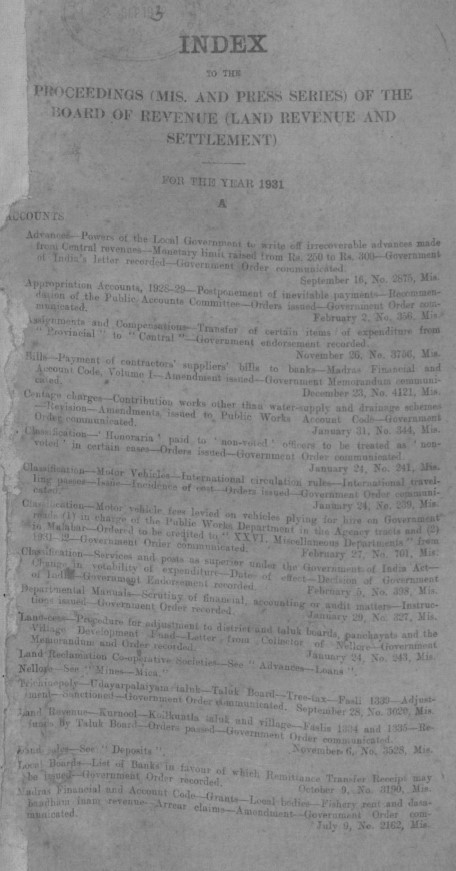 INDEX
TO THE
PROCEEDINGS (MIS. AND PRESS SERIES) OF THE
BOARD OF REVENUE (LAND REVENUE AND
SETTLEMENT)
FOR THE YEAR 1931
A
ACCOUNTS
Advances—Powers of the Local Government to write off irrecoverable advances made
from Central revenues—Monetary limit raised from Rs. 250 to Rs. 300—Government
of India's letter recorded—Government Order communicated.
September 16, No. 2875, Mis.
Appropriation Accounts, 1928-29—Postponement of inevitable payments—Recommen-
dation of the Public Accounts Committee—Orders issued—Government Order com-
municated.
February 7, No. 396, Mis.
Assignments and Compensations—Transfer of certain items of expenditure from
"Provincial" to "Central"—Government endorsement recorded.
November 26, No. 3756, Mis.
Bills—Payment of contractors' suppliers' bills to banks—Madras Financial and
Account Code, Volume I—Amendment issued—Government Memorandum communi-
cated.
December 23, No. 4121, Mis.
Centage charges—Contribution works other than water-supply and drainage schemes
—Revision—Amendments issued to Public Works Account Code—Government
Order communicated.
January 31, No. 344, Mis.
Classification—'Honoraria' paid to 'non-voted' officers to be treated as 'non-
voted' in certain cases—Orders issued—Government Order communicated
January 24, No. 241, Mis.
Classification—Motor Vehicles—International circulation rules—International travel-
ling passes—Issue—Incidence of cost—Orders issued—Government Order communi-
cated.
January 24, No. 239, Mis.
Classification—Motor vehicle fees levied on vehicles plying for hire on Government
roads (1) in charge of the Public Works Department in the Agency tracts and (2)
in Malabar—Ordered to be credited to "XXVI. Miscellaneous Departments" from
1931-32—Government Order communicated.
February 27, No. 761, Mis.
Classification—Services and posts as superior under the Government of India Act—
Change in votability of expenditure—Dates of effect—Decision of Government
of India—Government Endorsement recorded.
February 5, No. 398, Mis.
Departmental Manuals—Scrutiny of financial, accounting or audit matters—Instruc-
tions issued—Government Order recorded.
January 29, No. 327, Mis.
Land-cess—Procedure for adjustment to district and taluk boards, panchayats and the
Village Development Fund—Letter from Collector of Nellore—Government
Memorandum and Order recorded.
January 24, No. 243, Mis.
Land Reclamation Co-operative Societies—See "Advances—Loans".
Nellore—See "Mines—Mica."
Trichinopoly—Udayarpalaiyam taluk—Taluk Board—Tree-tax—Fasli 1339—Adjust-
ment sanctioned—Government Order communicated.
September 28, No. 3020, Mis.
Land Revenue—Kurnool—Koilkuntla taluk and village—Faslis 1334 and 1335—Re-
by Taluk Board—Orders passed—Government Order communicated.
November 6, No. 3528, Mis.
See "Deposits".
Local Boards—List of Banks in favour of which Remittance Transfer Receipt may
be issued—Government Order recorded.
October 9, No. 3190, Mis.
Madras Financial and Account Code—Grants—Local bodies—Fishery rent and
inam revenue—Arrear claims—Amendment—Government Order com-
municated.
July 9, No. 2162, Mis.